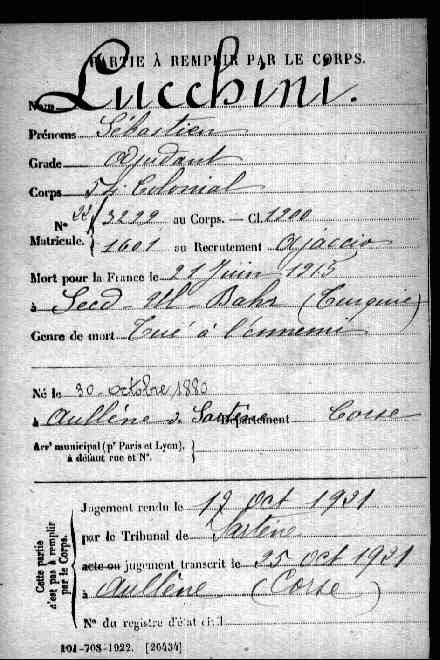 PARTIE À REMPLIR PAR LE CORPS.
Nom Lucchini.
Prénoms Sébastien
Grade Adjudant
Corps 54 i. Colonial
N° 3299 au Corps. — Cl. 1900
Matricule. 1601 au Recrutement Ajaccio
Mort pour la France le 21 Juin 1915
à Sedd-Ul-Bahr (Turquie)
Genre de mort Tué à l'ennemi
Né le 30 octobre 1880
à Aullène d. Sartène Département Corse
Arrt municipal (pr Paris et Lyon),
à défaut rue et N°.
Cette partie
n'est pas à remplir
par le Corps.
Jugement rendu le 12 Oct 1921
par le Tribunal de Sartène
acte ou jugement transcrit le 25 oct 1921
à Aullène (Corse)
N° du registre d'état civil
101-708-1922. [26434]